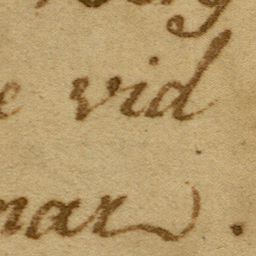 e vid
nar.